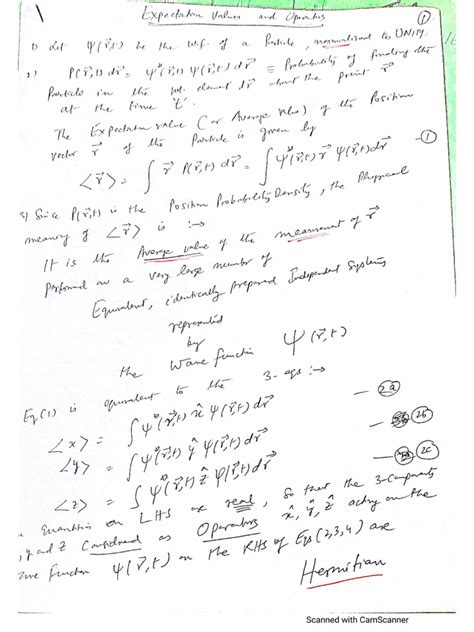 Expectation Values and Operators ①
1) Let ψ(r⃗,t) be the w.f. of a Particle, normalised to UNITY.
2) P(r⃗,t) dr⃗ = ψ*(r⃗,t) ψ(r⃗,t) dr⃗ ≡ Probability of finding the
Particle in the vol. element dr⃗ about the point r⃗
at the time 't'.
The Expectation value (or Average value) of the Position
vector r⃗ of the Particle is given by
<r⃗> = ∫ r⃗ P(r⃗,t) dr⃗ = ∫ ψ*(r⃗,t) r⃗ ψ(r⃗,t) dr⃗ — ①
3) Since P(r⃗,t) is the Position Probability Density, the Physical
meaning of <r⃗> is :→
It is the Average value of the measurement of r⃗
performed on a very large number of
Equivalent, identically prepared Independent Systems
represented
by
the Wave function ψ(r⃗,t)
Eq(1) is equivalent to the 3-eqs :→
<x> = ∫ ψ*(r⃗,t) x̂ ψ(r⃗,t) dr⃗ — 2a
<y> = ∫ ψ*(r⃗,t) ŷ ψ(r⃗,t) dr⃗ — 2b
<z> = ∫ ψ*(r⃗,t) ẑ ψ(r⃗,t) dr⃗ — 2c
Quantities on LHS are real, so that the 3-Components
, y and z Considered as Operators x̂, ŷ, ẑ acting on the
function ψ(r⃗,t) on the RHS of Eqs (2,3,4) are
Hermitian
Scanned with CamScanner